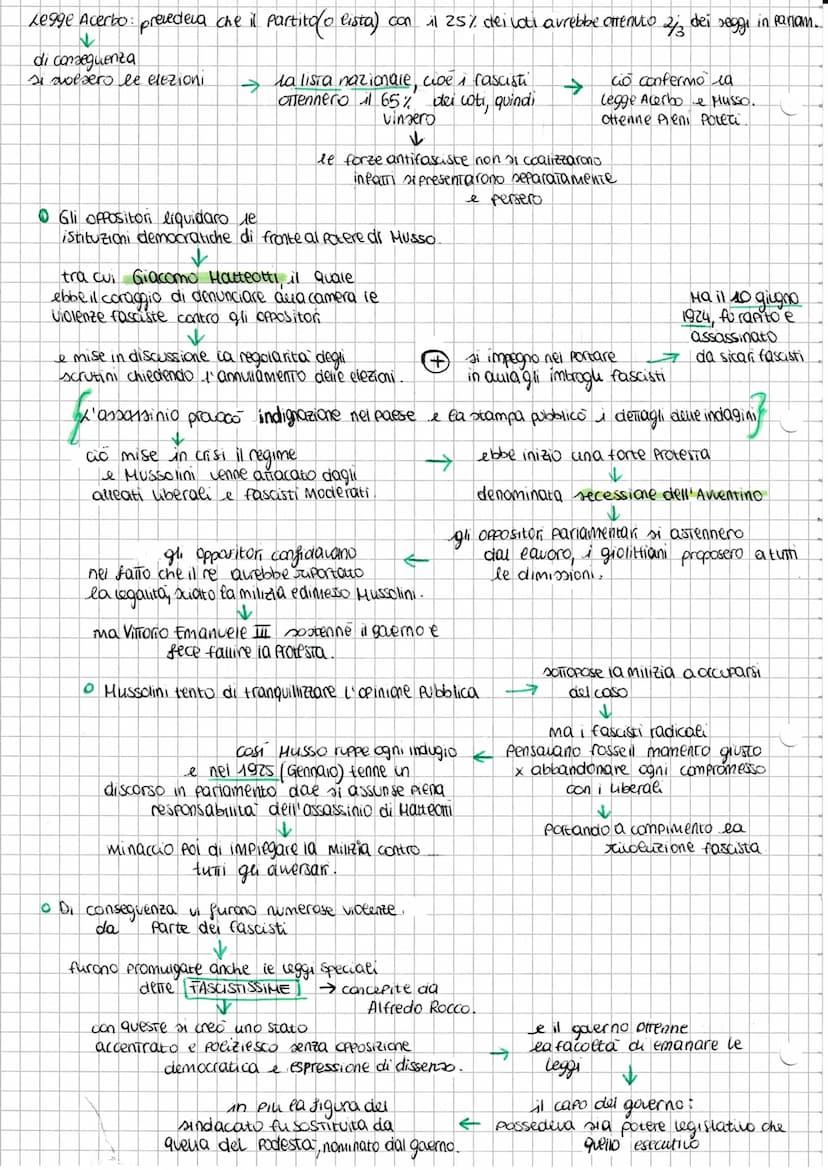 Legge Acerbo: prevedeva che il partito (o lista) con il 25% dei voti avrebbe ottenuto 2/3 dei seggi in Parlam.
di conseguenza
si svolsero le elezioni → la lista nazionale, cioè i fascisti
ottennero il 65% dei voti, quindi
vinsero
→ ciò confermò la
Legge Acerbo e Musso.
ottenne Pieni Poteri.
le forze antifasciste non si coalizzarono
infatti si presentarono separatamente
e persero
Gli oppositori liquidaro le
istituzioni democratiche di fronte al potere di Musso.
tra cui Giacomo Matteotti, il quale
ebbe il coraggio di denunciare alla camera le
violenze fasciste contro gli oppositori
e mise in discussione la regolarità degli
scrutini chiedendo l'annulamento delle elezioni.
+ si impegno nel portare
in aula gli imbrogli fascisti
→ Ma il 10 giugno
1924, fu rapito e
assassinato
da sicari fascisti
{L'assassinio provocò indignazione nel paese e la stampa pubblicò i dettagli delle indagini}
ciò mise in crisi il regime
e Mussolini venne attacato dagli
alleati liberali e fascisti Moderati.
→ ebbe inizio una forte protesta
denominata secessione dell'Aventino
gli oppositori parlamentari si astennero
dal lavoro, i giolittiani proposero a tutti
le dimissioni.
← gli oppositori confidavano
nel fatto che il re avrebbe riportato
la legalità, sciolto la milizia e dimesso Mussolini.
ma Vittorio Emanuele III sostenne il governo e
fece fallire la protesta.
Mussolini tentò di tranquillizzare l'opinione pubblica → sottopose la milizia a occuparsi
del caso
ma i fascisti radicali
pensavano fosse il momento giusto
x abbandonare ogni compromesso
con i liberali
Portando a compimento la
rivoluzione fascista
← così Musso ruppe ogni indugio
e nel 1925 (Gennaio) tenne un
discorso in parlamento dove si assunse piena
responsabilità dell'assassinio di Matteotti
minacciò poi di impiegare la milizia contro
tutti gli avversari.
Di conseguenza vi furono numerose violenze
da parte dei fascisti
furono promulgate anche le leggi speciali
dette FASCISTISSIME → concepite da
Alfredo Rocco.
con queste si creò uno stato
accentrato e poliziesco senza opposizione
democratica e espressione di dissenso.
→ e il governo ottenne
la facoltà di emanare le
leggi
il capo del governo:
possedeva sia potere legislativo che
quello esecutivo
← in più la figura del
sindacato fu sostituita da
quella del Podestà, nominato dal governo.